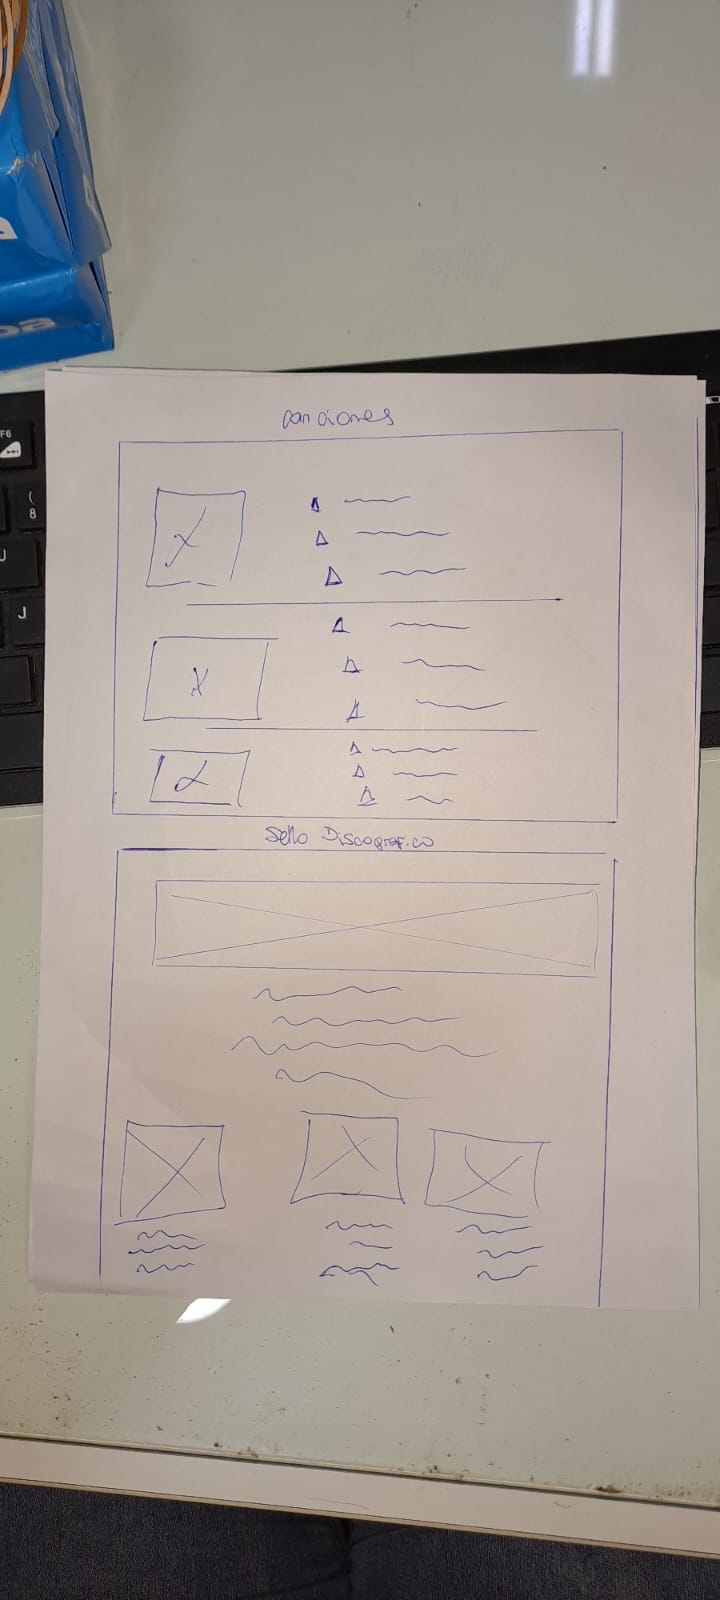 canciones
Sello Discografico
F6
(
8
J